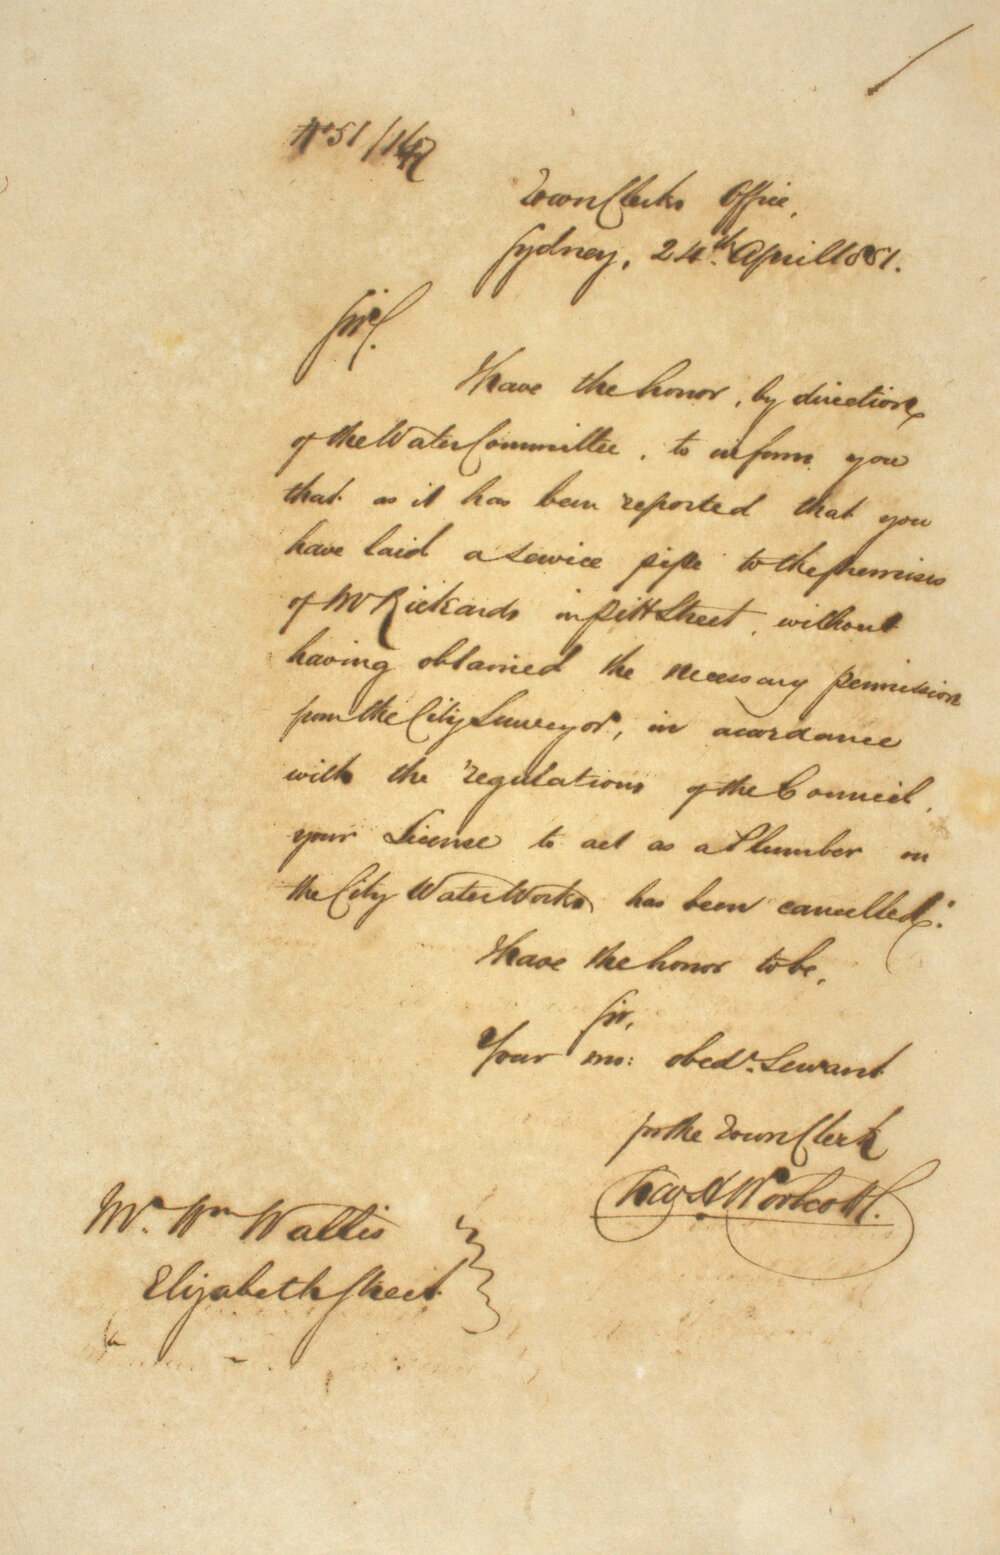 No 51/147
Town Clerks Office,
Sydney, 24th April 1851.
Sir,
I have the honor, by direction
of the Water Committee, to inform you
that as it has been reported that you
have laid a service pipe to the premises
of Mr Rickards in Pitt Street, without
having obtained the necessary permission
from the City Surveyor, in acordance
with the regulations of the Council,
your License to act as a Plumber on
the City Water Works has been cancelled.
I have the honor to be,
Sir,
Your mo: obedt. Servant
for the Town Clerk
Chas H Woolcott.
Mr. Wm Wallis
Elizabeth Street